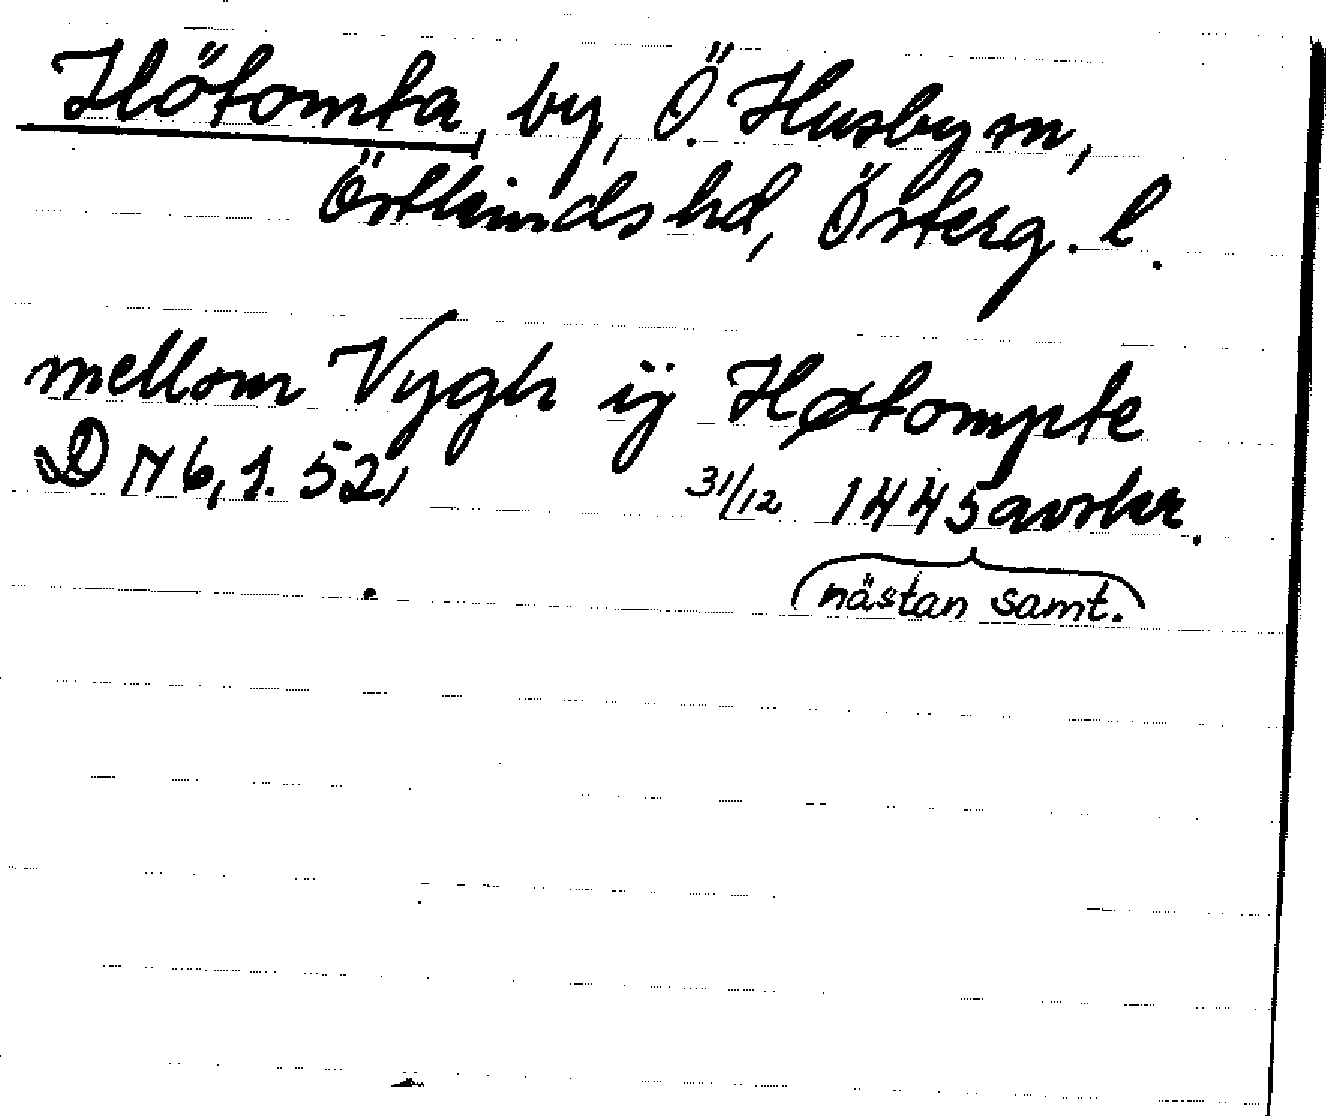 Hötomta, by, Ö. Husby sn,
Östkinds hd, Österg. l.
mellom Vygh ij Høtompte
D N 6, 1. 52, 31/12 1445 avskr.
nästan samt.